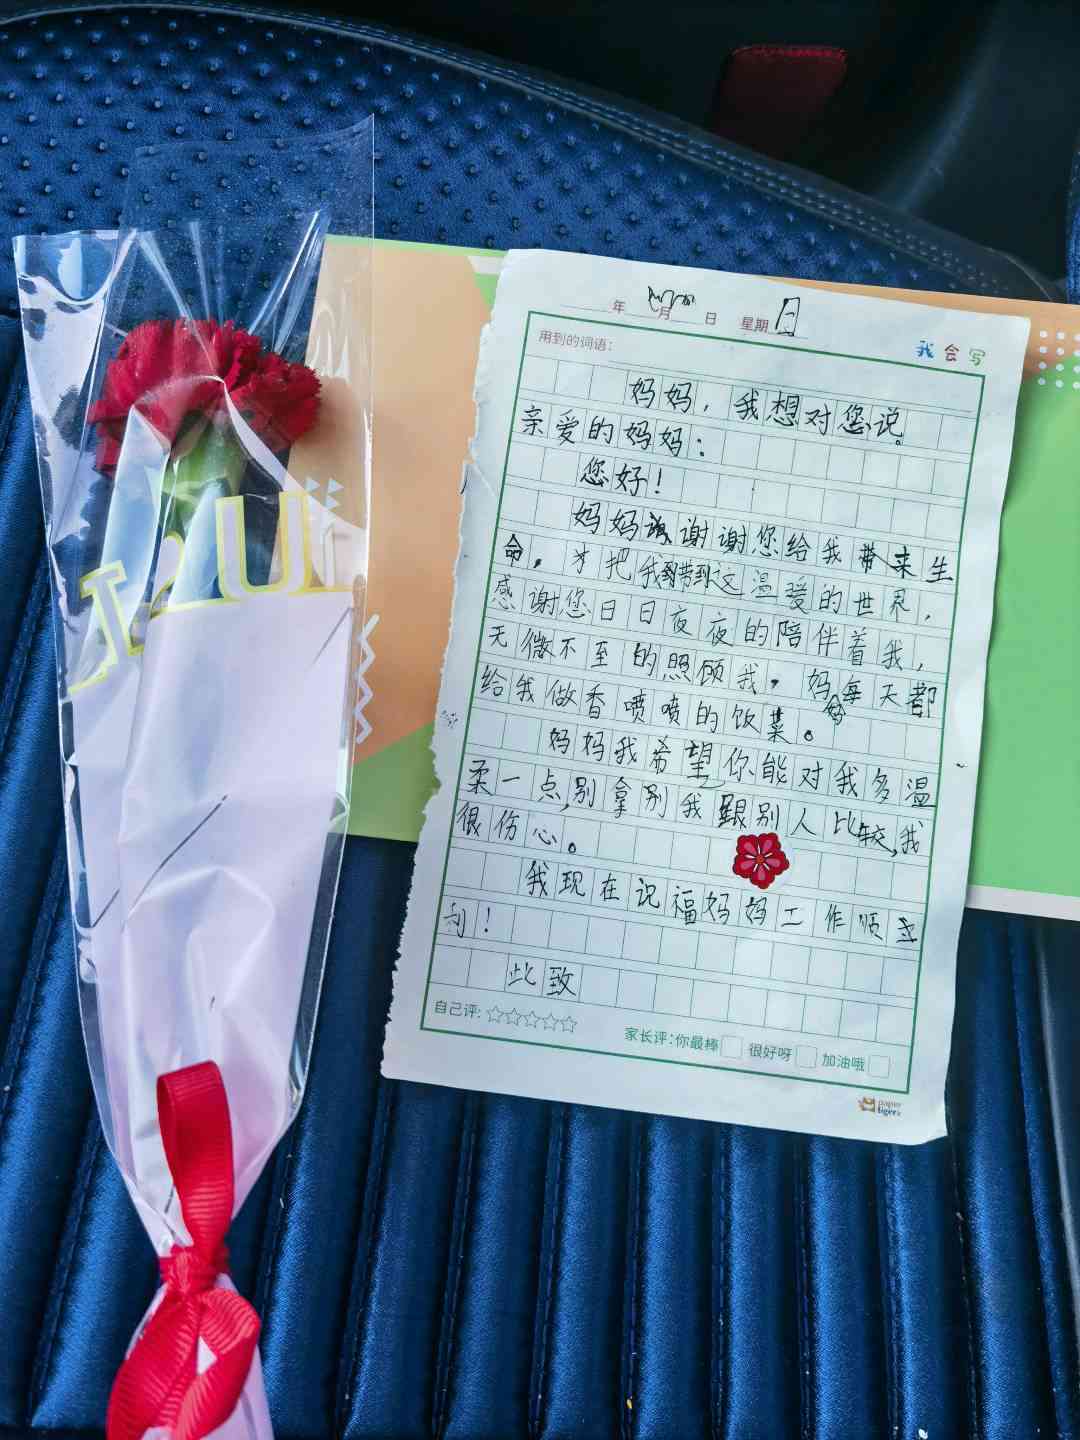 年 月 日 星期日
用到的词语：
我会写
妈妈，我想对您说。
亲爱的妈妈：
您好！
妈妈谢谢您给我带来生
命，才把我带到这温暖的世界，
感谢您日日夜夜的陪伴着我，
无微不至的照顾我，妈妈每天都
给我做香喷喷的饭菜。
妈妈我希望你能对我多温
柔一点，别拿别我跟别人比较，我
很伤心。
我现在祝福妈妈工作顺
利！
此致
自己评：☆☆☆☆☆
家长评：你最棒□ 很好呀□ 加油哦□
paper tiger
U